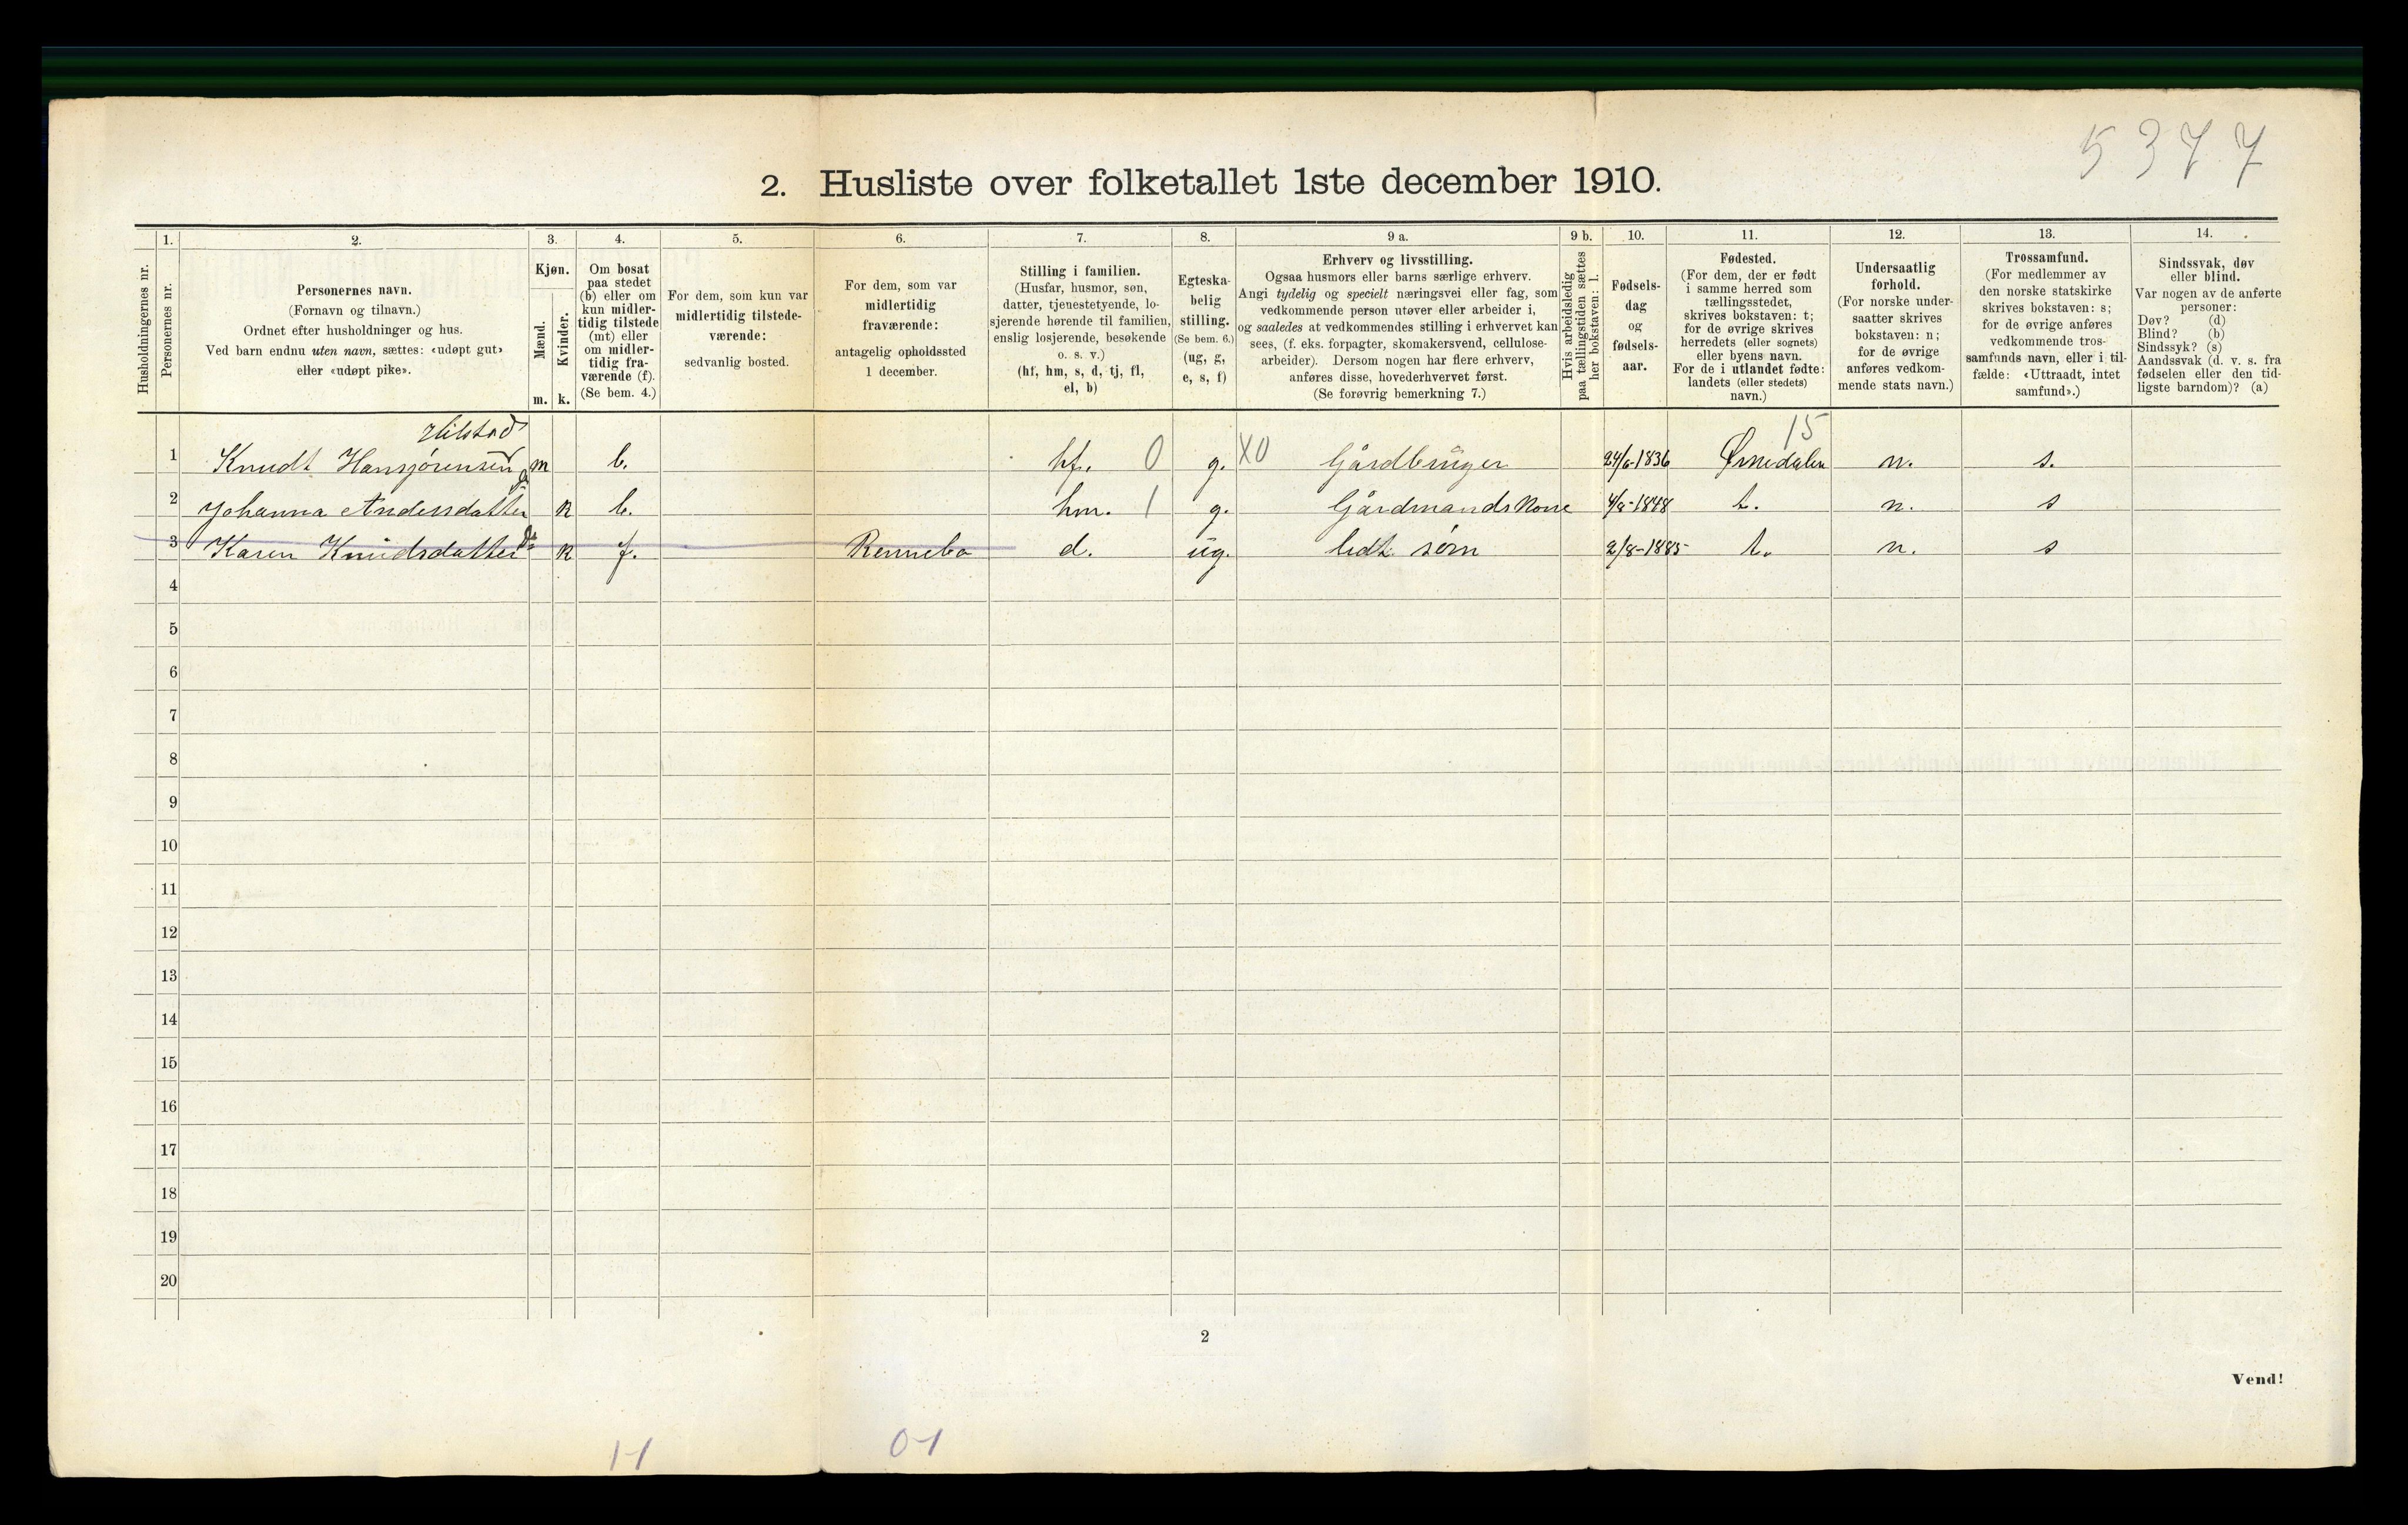 5377
2. Husliste over folketallet 1ste december 1910.
Husholdningernes nr.
1.
Personernes nr.
2.
Personernes navn.
(Fornavn og tilnavn.)
Ordnet efter husholdninger og hus.
Ved barn endnu uten navn, sættes: «udøpt gut»
eller «udøpt pike».
3.
Kjøn.
Mænd.
Kvinder.
m. k.
4.
Om bosat
paa stedet
(b) eller om
kun midler-
tidig tilstede
(mt) eller
om midler-
tidig fra-
værende (f).
(Se bem. 4.)
5.
For dem, som kun var
midlertidig tilstede-
værende:
sedvanlig bosted.
6.
For dem, som var
midlertidig
fraværende:
antagelig opholdssted
1 december.
7.
Stilling i familien.
(Husfar, husmor, søn,
datter, tjenestetyende, lo-
sjerende hørende til familien,
enslig losjerende, besøkende
o. s. v.)
(hf, hm, s, d, tj, fl,
el, b)
8.
Egteska-
belig
stilling.
(Se bem. 6.)
(ug, g,
e, s, f)
9 a.
Erhverv og livsstilling.
Ogsaa husmors eller barns særlige erhverv.
Angi tydelig og specielt næringsvei eller fag, som
vedkommende person utøver eller arbeider i,
og saaledes at vedkommendes stilling i erhvervet kan
sees, (f. eks. forpagter, skomakersvend, cellulose-
arbeider). Dersom nogen har flere erhverv,
anføres disse, hovederhvervet først.
(Se forøvrig bemerkning 7.)
9 b.
Hvis arbeidsledig
paa tællingstiden sættes
her bokstaven: l.
10.
Fødsels-
dag
og
fødsels-
aar.
11.
Fødested.
(For dem, der er født
i samme herred som
tællingsstedet,
skrives bokstaven: t;
for de øvrige skrives
herredets (eller sognets)
eller byens navn.
For de i utlandet fødte:
landets (eller stedets)
navn.)
12.
Undersaatlig
forhold.
(For norske under-
saatter skrives
bokstaven: n;
for de øvrige
anføres vedkom-
mende stats navn.)
13.
Trossamfund.
(For medlemmer av
den norske statskirke
skrives bokstaven: s;
for de øvrige anføres
vedkommende tros-
samfunds navn, eller i til-
fælde: «Uttraadt, intet
samfund».)
14.
Sindssvak, døv
eller blind.
Var nogen av de anførte
personer:
Døv? (d)
Blind? (b)
Sindssyk? (s)
Aandssvak (d. v. s. fra
fødselen eller den tid-
ligste barndom)? (a)
15
1 Knudt Hansjørensen m b. hf. 0 g. X0 Gårdbrüger 24/6-1836 Ørnedalen n. s.
2 Johanna Andersdatter k b. hm. 1 g. Gårdmands Kone 1848 t. n. s
3 Karen Knüdsdatter k f. Rennebo d. üg. lidt søm 2/8-1885 t. n. s
4
5
6
7
8
9
10
11
12
13
14
15
16
17
18
19
20
2
Vend!
1-1 0-1